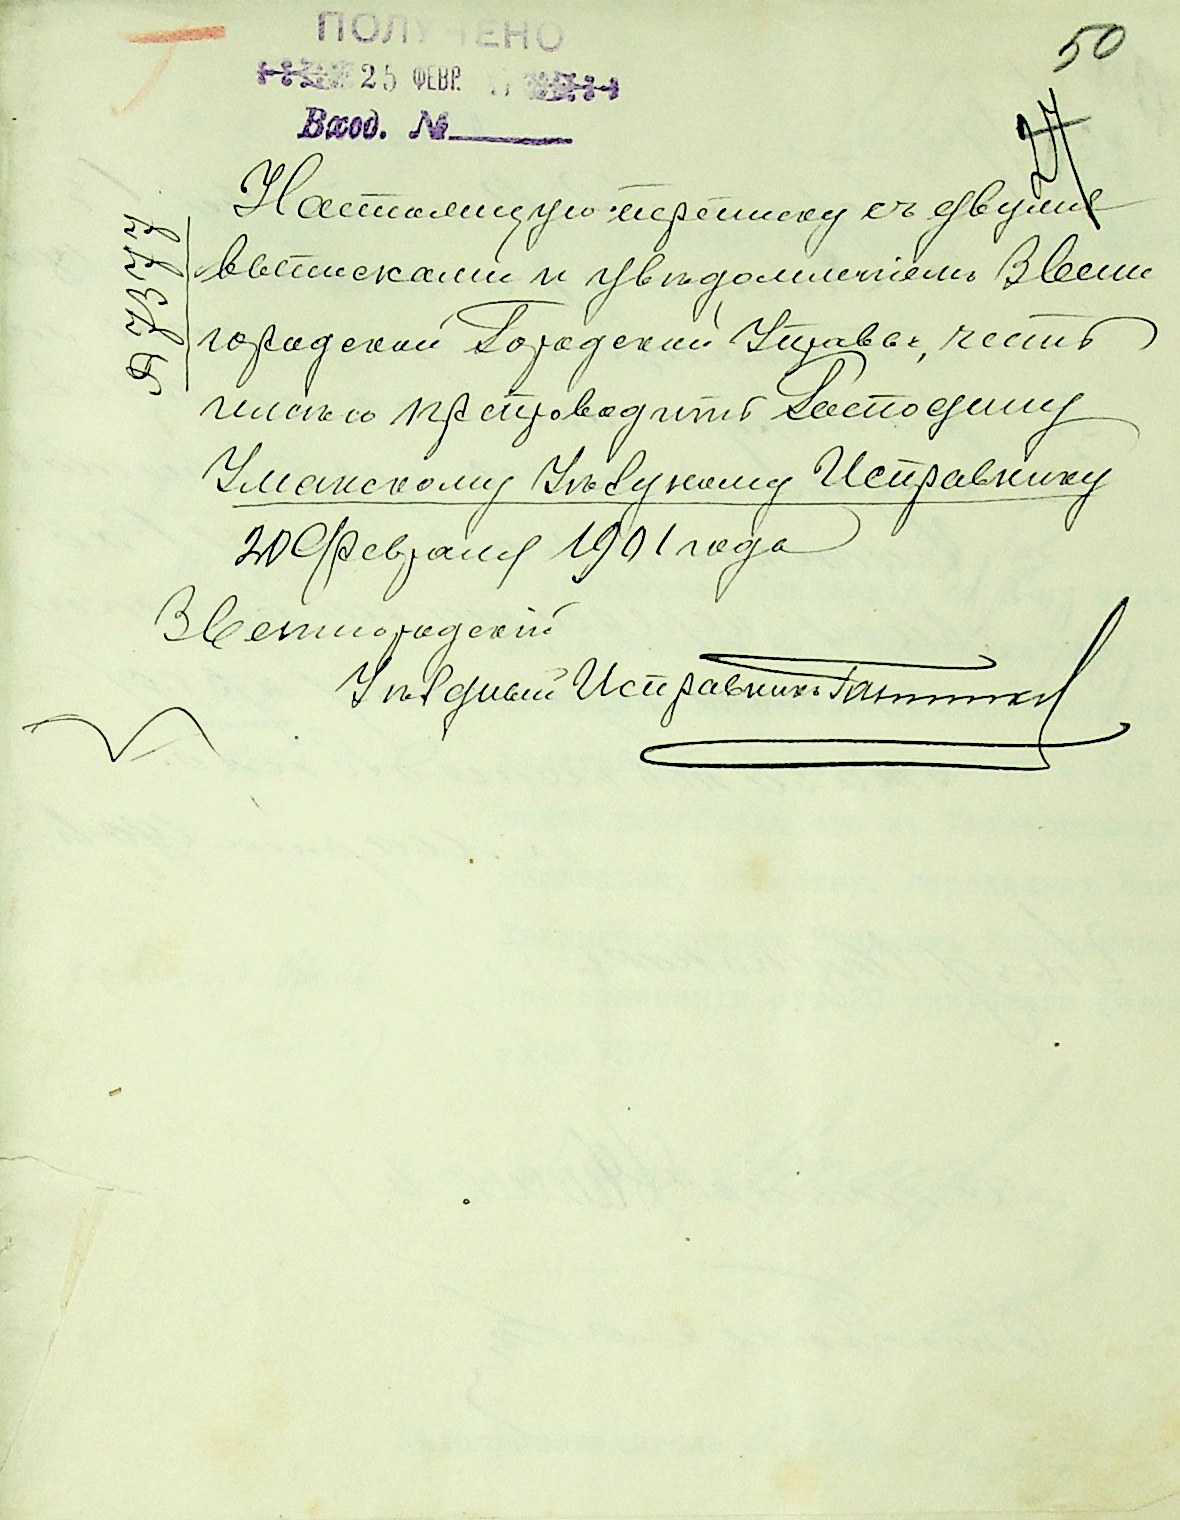 ПОЛУЧЕНО
50
25 ФЕВР.
Вход. №
27
Настоящую переписку съ двумя
№ 7377
выписками и увѣдомленіемъ Звени
городской Городской Управы, честь
имѣю препроводить Господину
Уманскому Уѣздному Исправнику
20 Февраля 1901 года
Звенигородскій
Уѣздный Исправникъ